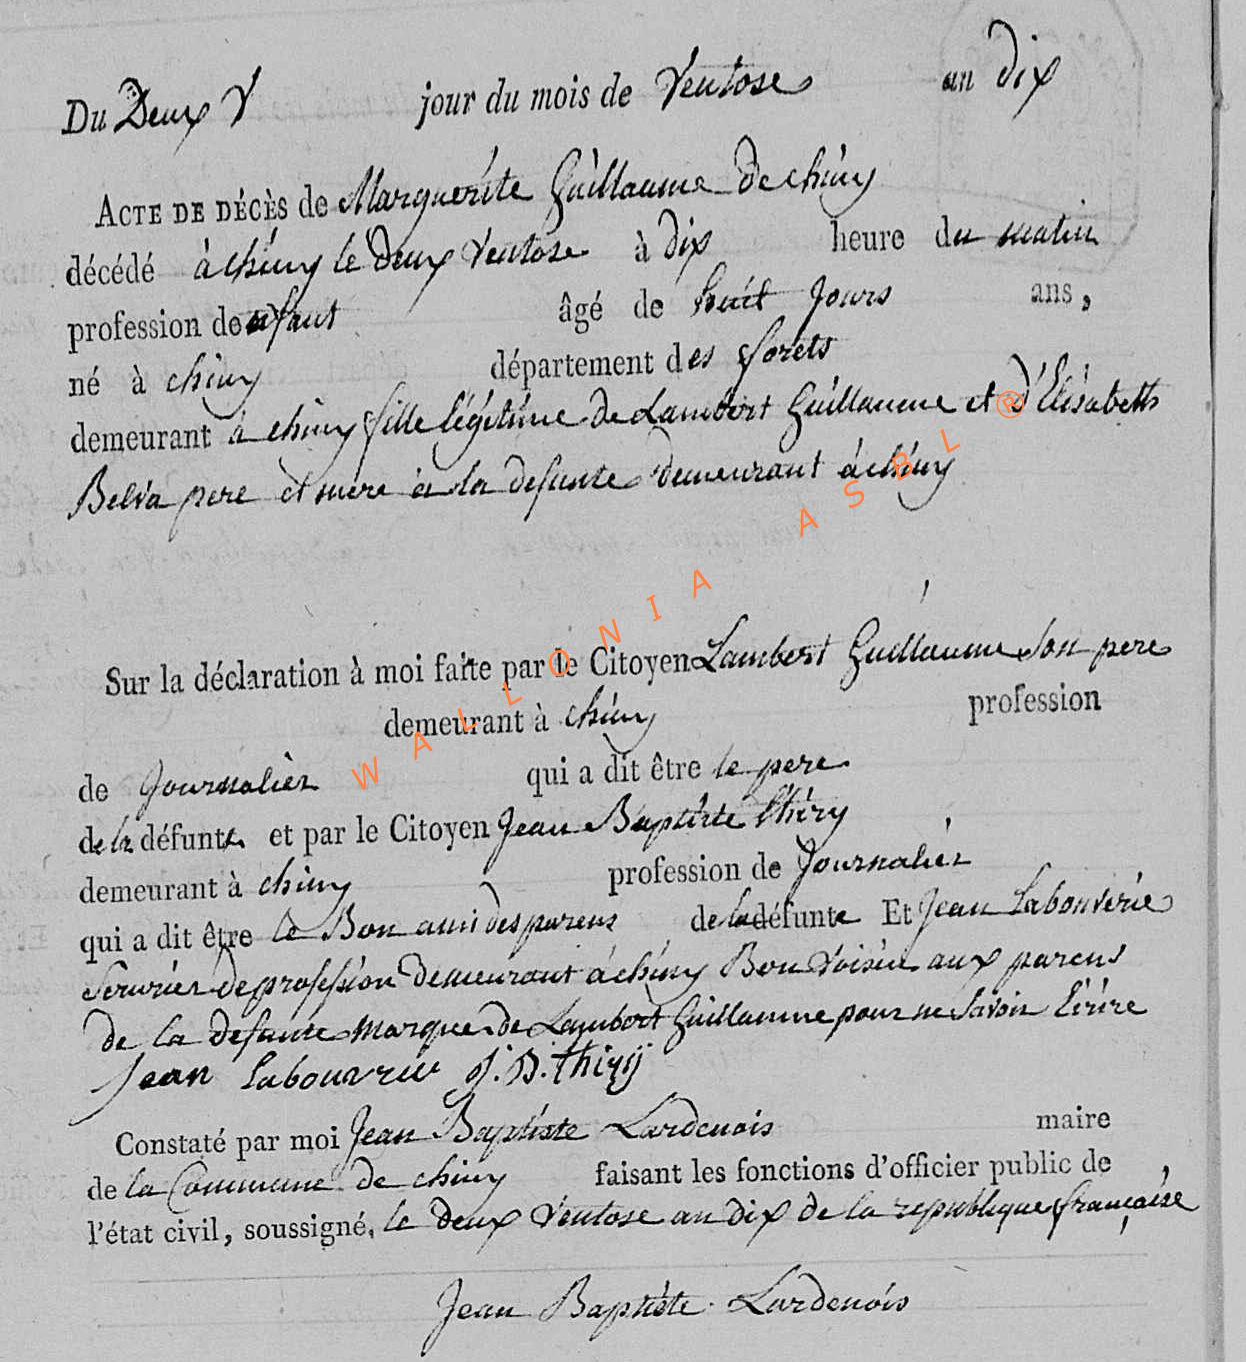 Du Deux V jour du mois de Ventose an dix
ACTE DE DÉCÈS de Marguerite Guillaume de chiny
décédé à chiny le deux Ventose à dix heure du matin
profession de enfant âgé de huit jours ans,
né à chiny département des forets
demeurant à chiny fille légitime de Lambert Guillaume et d'Elisabeth
Belva pere et mere à la defunte demeurant à chiny
Sur la déclaration à moi faite par le Citoyen Lambert Guillaume son pere
demeurant à chiny profession
de Journalier qui a dit être le pere
de la défunte et par le Citoyen Jean Baptiste thiry
demeurant à chiny profession de Journalier
qui a dit être le Bon ami des parens de la défunte Et Jean Labouverie
Serurier de profession demeurant à chiny Bon Voisin aux parens
de la defunte marque de Lambert Guillaume pour ne savoir Ecrire
Jean Labouvrie J. B. thiry
Constaté par moi Jean Baptiste Lardenois maire
de la Commune de chiny faisant les fonctions d'officier public de
l'état civil, soussigné, le deux Ventose an dix de la republique française
Jean Baptiste Lardenois
WALLONIA ASBL ®